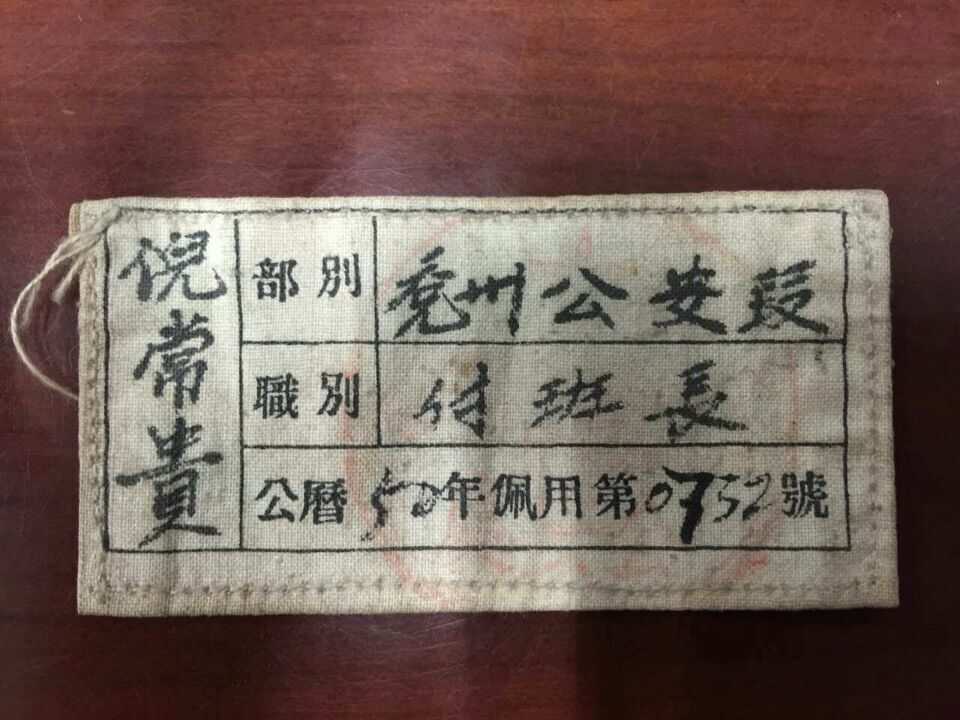 倪常貴
部別 兖州公安段
職別 付班長
公曆50年佩用第0752號